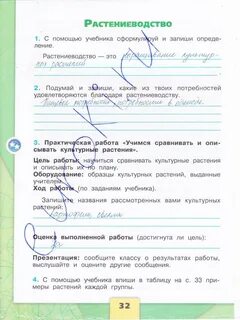 Растениеводство
1. С помощью учебника сформулируй и запиши определение.
Растениеводство — это выращивание культурных растений
2. Подумай и запиши, какие из твоих потребностей удовлетворяются благодаря растениеводству.
3. Практическая работа «Учимся сравнивать и описывать культурные растения».
Цель работы: научиться сравнивать культурные растения и описывать их по плану.
Оборудование: образцы культурных растений, выданные учителем.
Ход работы (по заданиям учебника).
Запишите названия рассмотренных вами культурных растений.
картофель, свёкла
Оценка выполненной работы (достигнута ли цель):
да
Презентация: сообщите классу о результатах работы, выслушайте и оцените другие сообщения.
4. С помощью учебника впиши в таблицу на с. 33 примеры растений каждой группы.
32